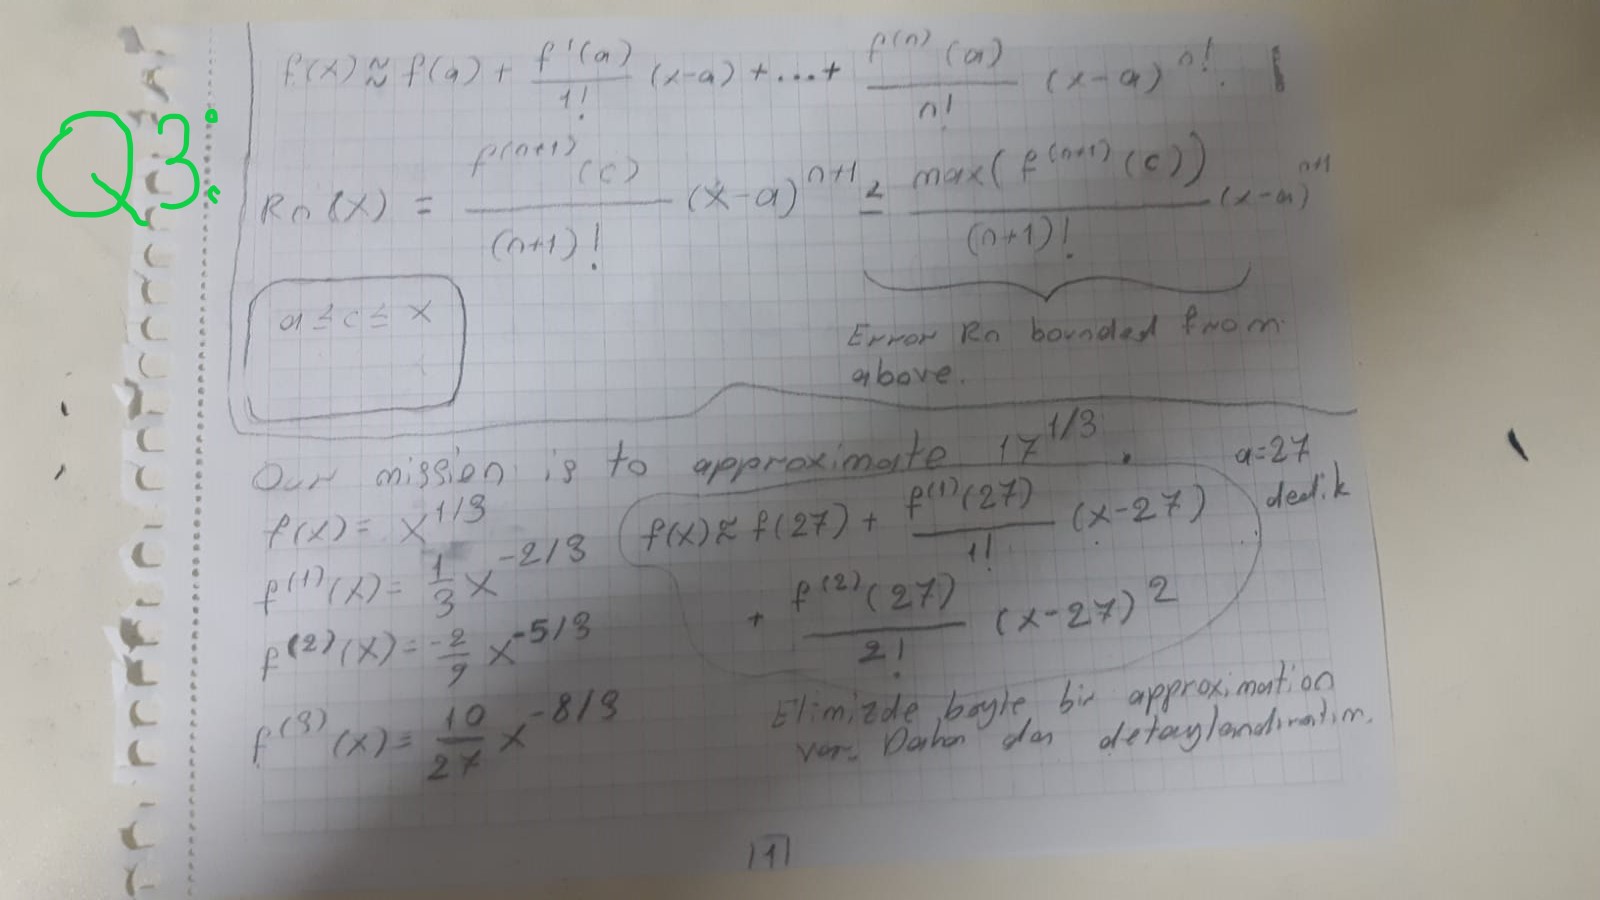 Q3:
f(x) ≈ f(a) + f'(a)/1! (x-a) + ... + f^(n)(a)/n! (x-a)^n!.
Rn(x) = f^(n+1)(c)/(n+1)! (x-a)^n+1 ≤ max(f^(n+1)(c))/(n+1)! (x-a)^n+1
a ≤ c ≤ x
Error Rn bounded from
above.
Our mission is to approximate 17^1/3.
a=27
dedik
f(x) = x^1/3
f^(1)(x) = 1/3 x^-2/3
f^(2)(x) = -2/9 x^-5/3
f^(3)(x) = 10/27 x^-8/3
f(x) ≈ f(27) + f^(1)(27)/1! (x-27)
+ f^(2)(27)/2! (x-27)^2
Elimizde böyle bir approximation
var. Daha da detaylandıralım.
|1|